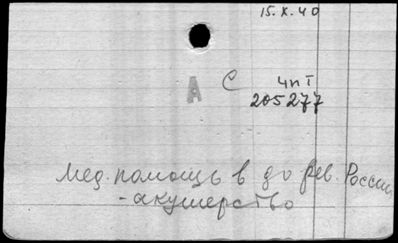 15.X.40
А С
4п I
205277
мед. помощь в до рев. России
- акушерство